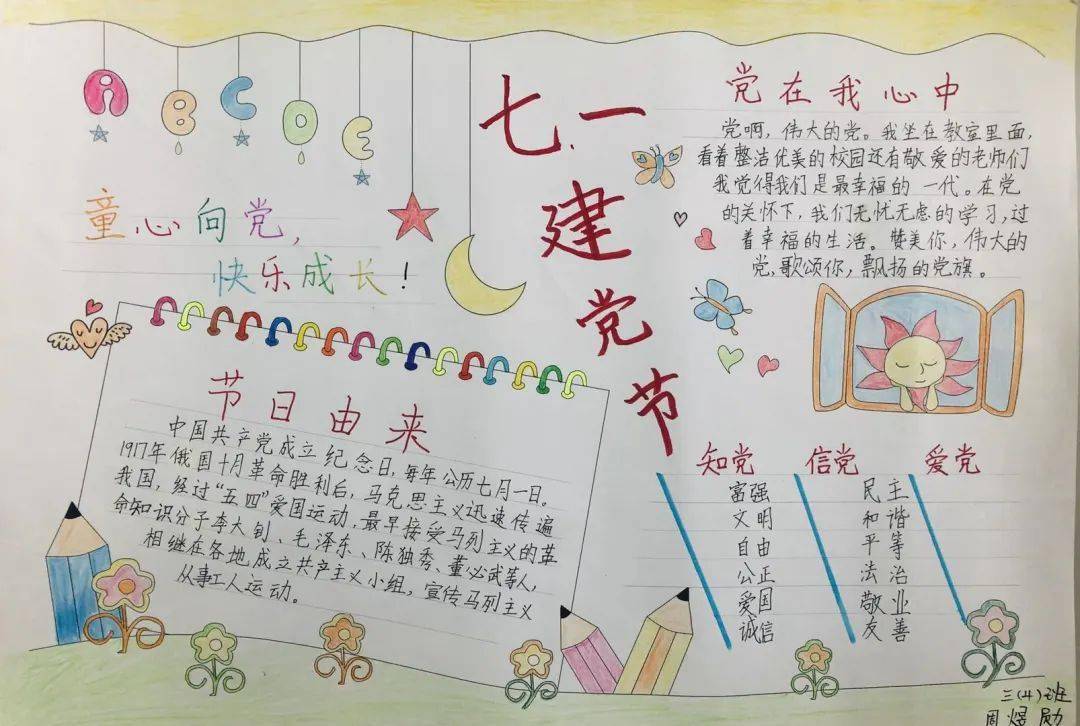 A B C D E
七一
建
党
节
童心向党,
快乐成长!
党在我心中
党啊,伟大的党。我坐在教室里面,
看着整洁优美的校园还有敬爱的老师们
我觉得我们是最幸福的一代。在党
的关怀下,我们无忧无虑的学习,过
着幸福的生活。赞美你,伟大的
党,歌颂你,飘扬的党旗。
节日由来
中国共产党成立纪念日,每年公历七月一日。
1917年俄国十月革命胜利后,马克思主义迅速传遍
我国,经过“五四”爱国运动,最早接受马列主义的革
命知识分子李大钊、毛泽东、陈独秀、董必武等人,
相继在各地成立共产主义小组,宣传马列主义
从事工人运动。
知党 信党 爱党
富强 民主
文明 和谐
自由 平等
公正 法治
爱国 敬业
诚信 友善
三(4)班
周煜勋